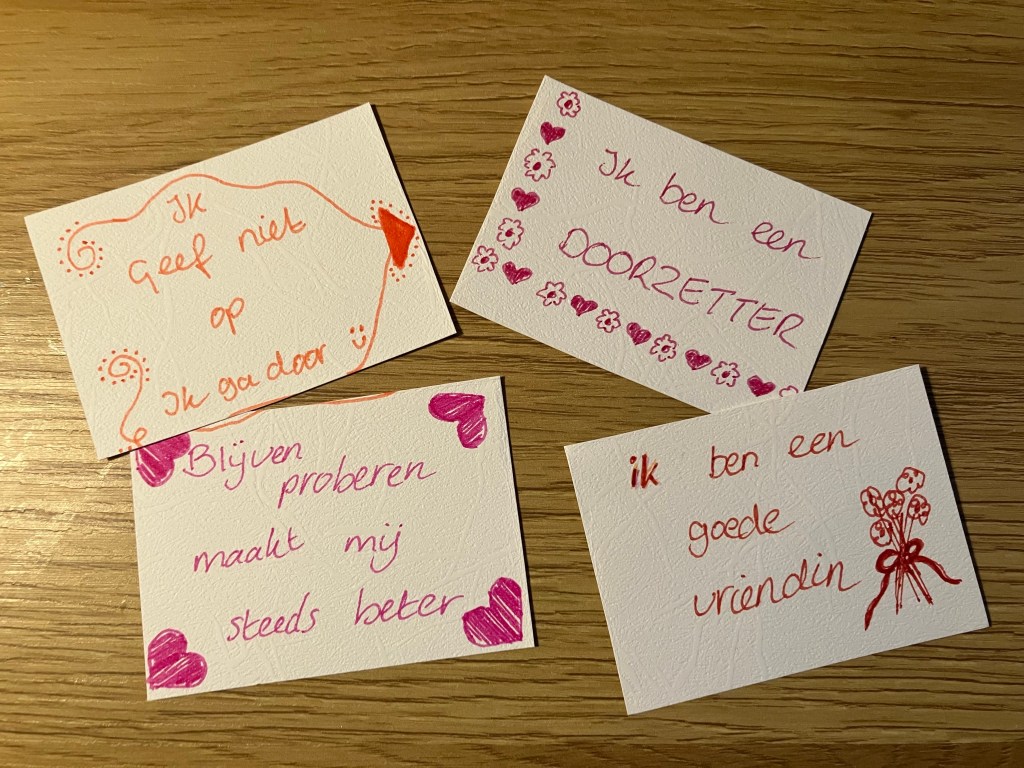 Ik
Geef niet
op
Ik ga door
Ik ben een
DOORZETTER
Blijven
proberen
maakt mij
steeds beter
ik ben een
goede
vriendin